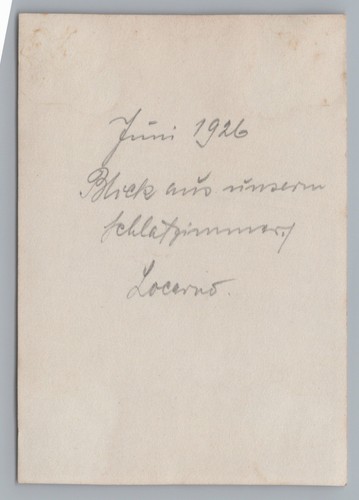 Juni 1926
Blick aus unserm
Schlafzimmer.
Locarno.